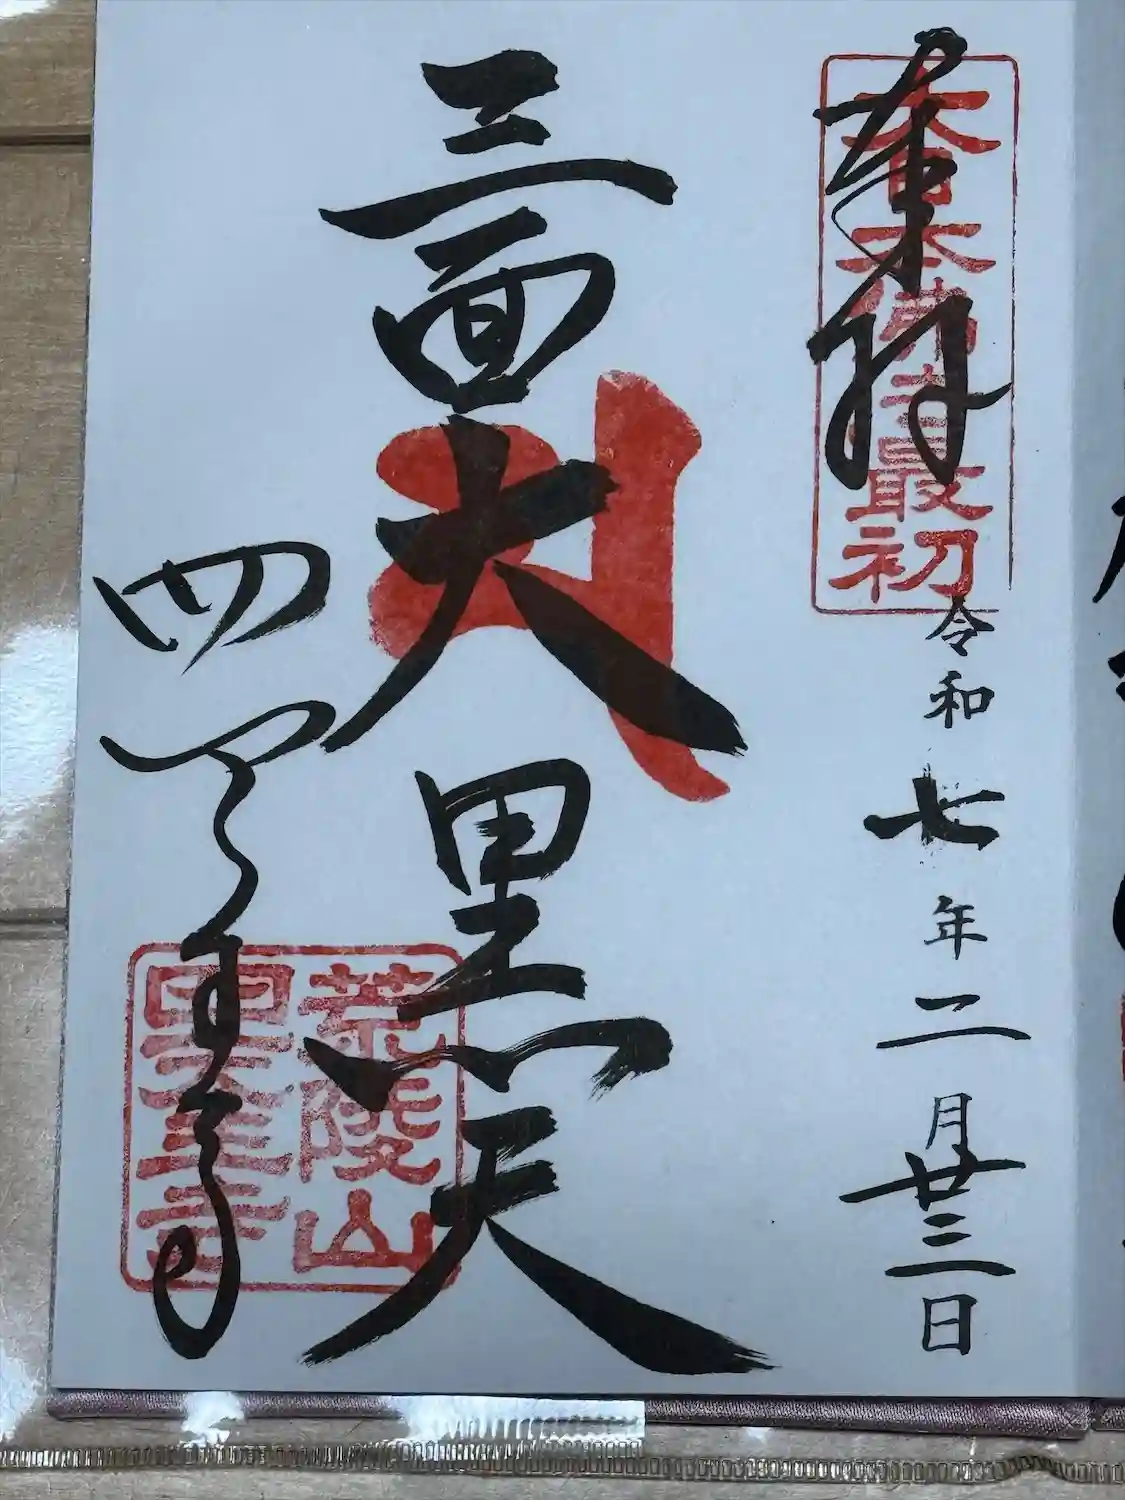 奉拝
大日本佛法最初
令和七年二月廿三日
三面大黒天
四天王寺
荒陵山
四天王寺